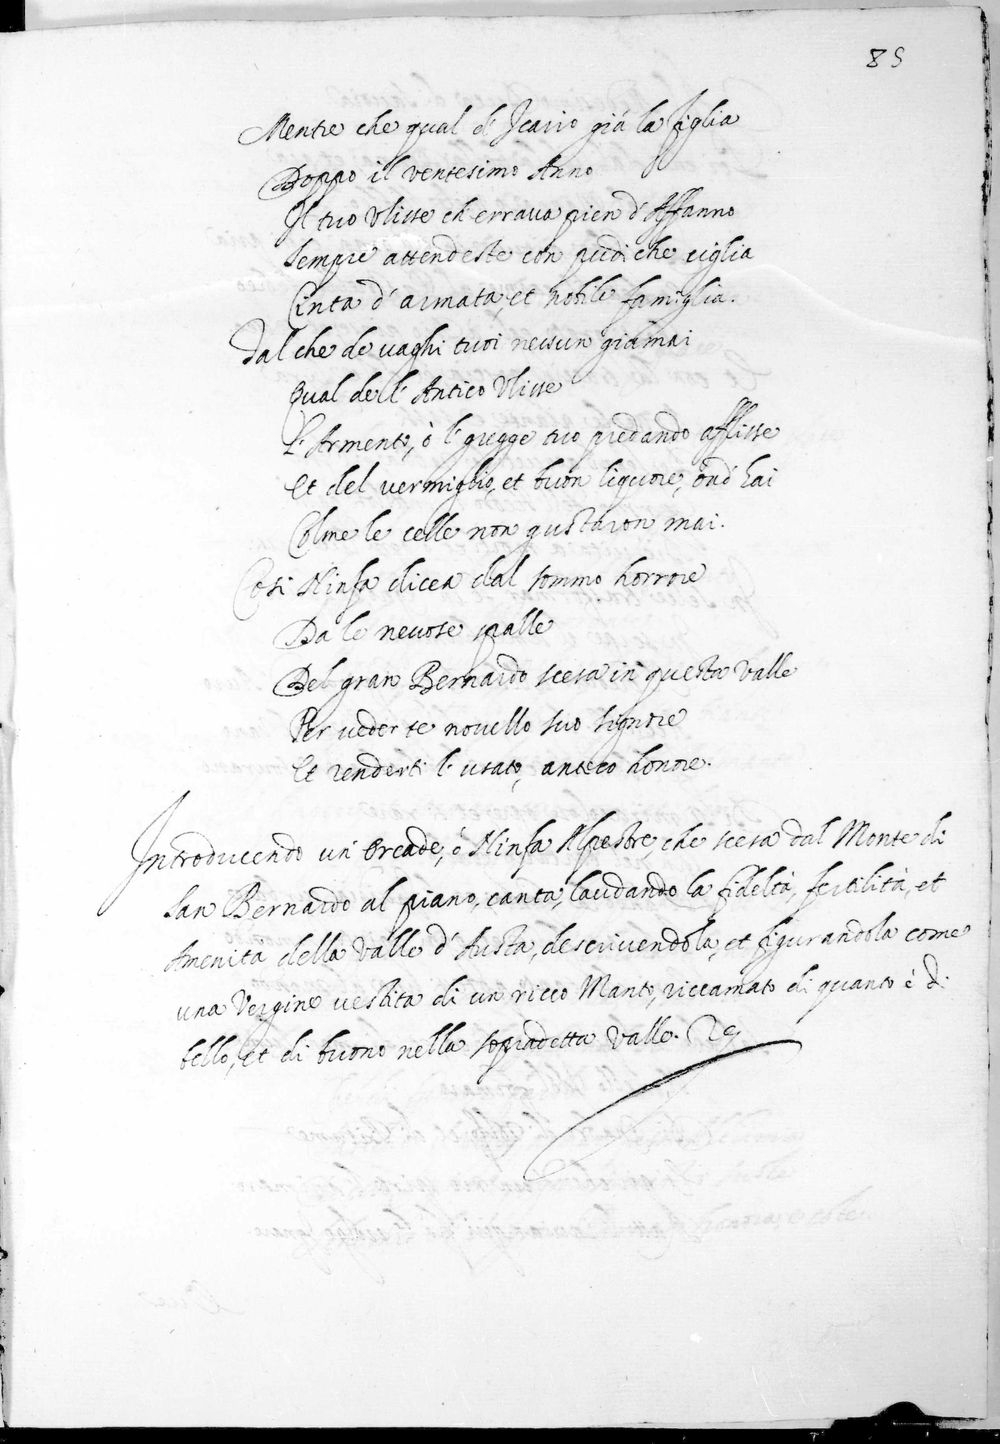 85
Mentre che qual d' Icario già la figlia
Doppo il ventesimo Anno
Il tuo Ulisse ch' errava pien d' Affanno
Sempre attendeste con pudiche ciglia
Cinta d' armata, et nobile famiglia.
Dal che de vaghi tuoi nessun giamai
Qual dell' Antico Ulisse
L' Armento, ò l' gregge tuo predando afflisse
Et del vermiglio, et buon liquore, ond' hai
Colme le celle non gustaron mai.
Cosi Ninfa dicea dal sommo horrore
Da le nevose spalle
Del gran Bernardo scesa in questa Valle
Per veder te novello suo signore
Et renderti l' usato, anteco honore.
Introducendo un' Orcade, ò Ninfa Alpestre, che scesa dal Monte di
San Bernardo al piano, canta, laudando la fideltà, fertilità, et
Amenita della Valle d' Austa, descrivendola, et figurandola come
una Vergine vestita di un ricco Manto, riccamato di quanto è di
bello, et di buono nella sopradetta Valle.